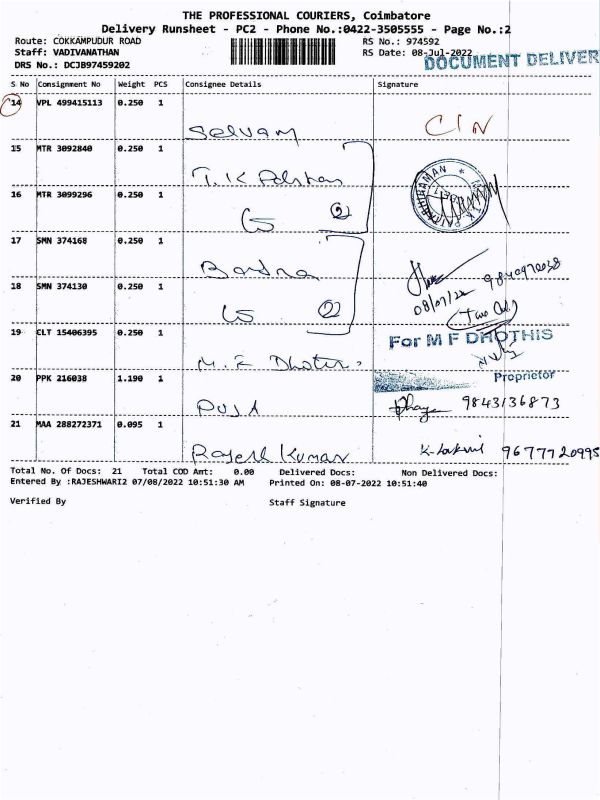 THE PROFESSIONAL COURIERS, Coimbatore
Delivery Runsheet - PC2 - Phone No.:0422-3505555 - Page No.:2
Route: COKKAMPUDUR ROAD RS No.: 974592
Staff: VADIVANATHAN RS Date: 08-Jul-2022
DOCUMENT DELIVER
DRS No.: DCJB97459202
S No Consignment No Weight PCS Consignee Details Signature
14 VPL 499415113 0.250 1
Selvam CIN
15 MTR 3092840 0.250 1
T.K
16 MTR 3099296 0.250 1
2
17 SMN 374168 0.250 1
9840970038
18 SMN 374130 0.250 1
08/07/22
2
19 CLT 15406395 0.250 1
For M F DHOTHIS
M.F
20 PPK 216038 1.190 1
Proprietor
PUJA 9843136873
21 MAA 288272371 0.095 1
Rajesh Kumar 9677720995
Total No. Of Docs: 21 Total COD Amt: 0.00 Delivered Docs: Non Delivered Docs:
Entered By :RAJESHWARI2 07/08/2022 10:51:30 AM Printed On: 08-07-2022 10:51:40
Verified By Staff Signature